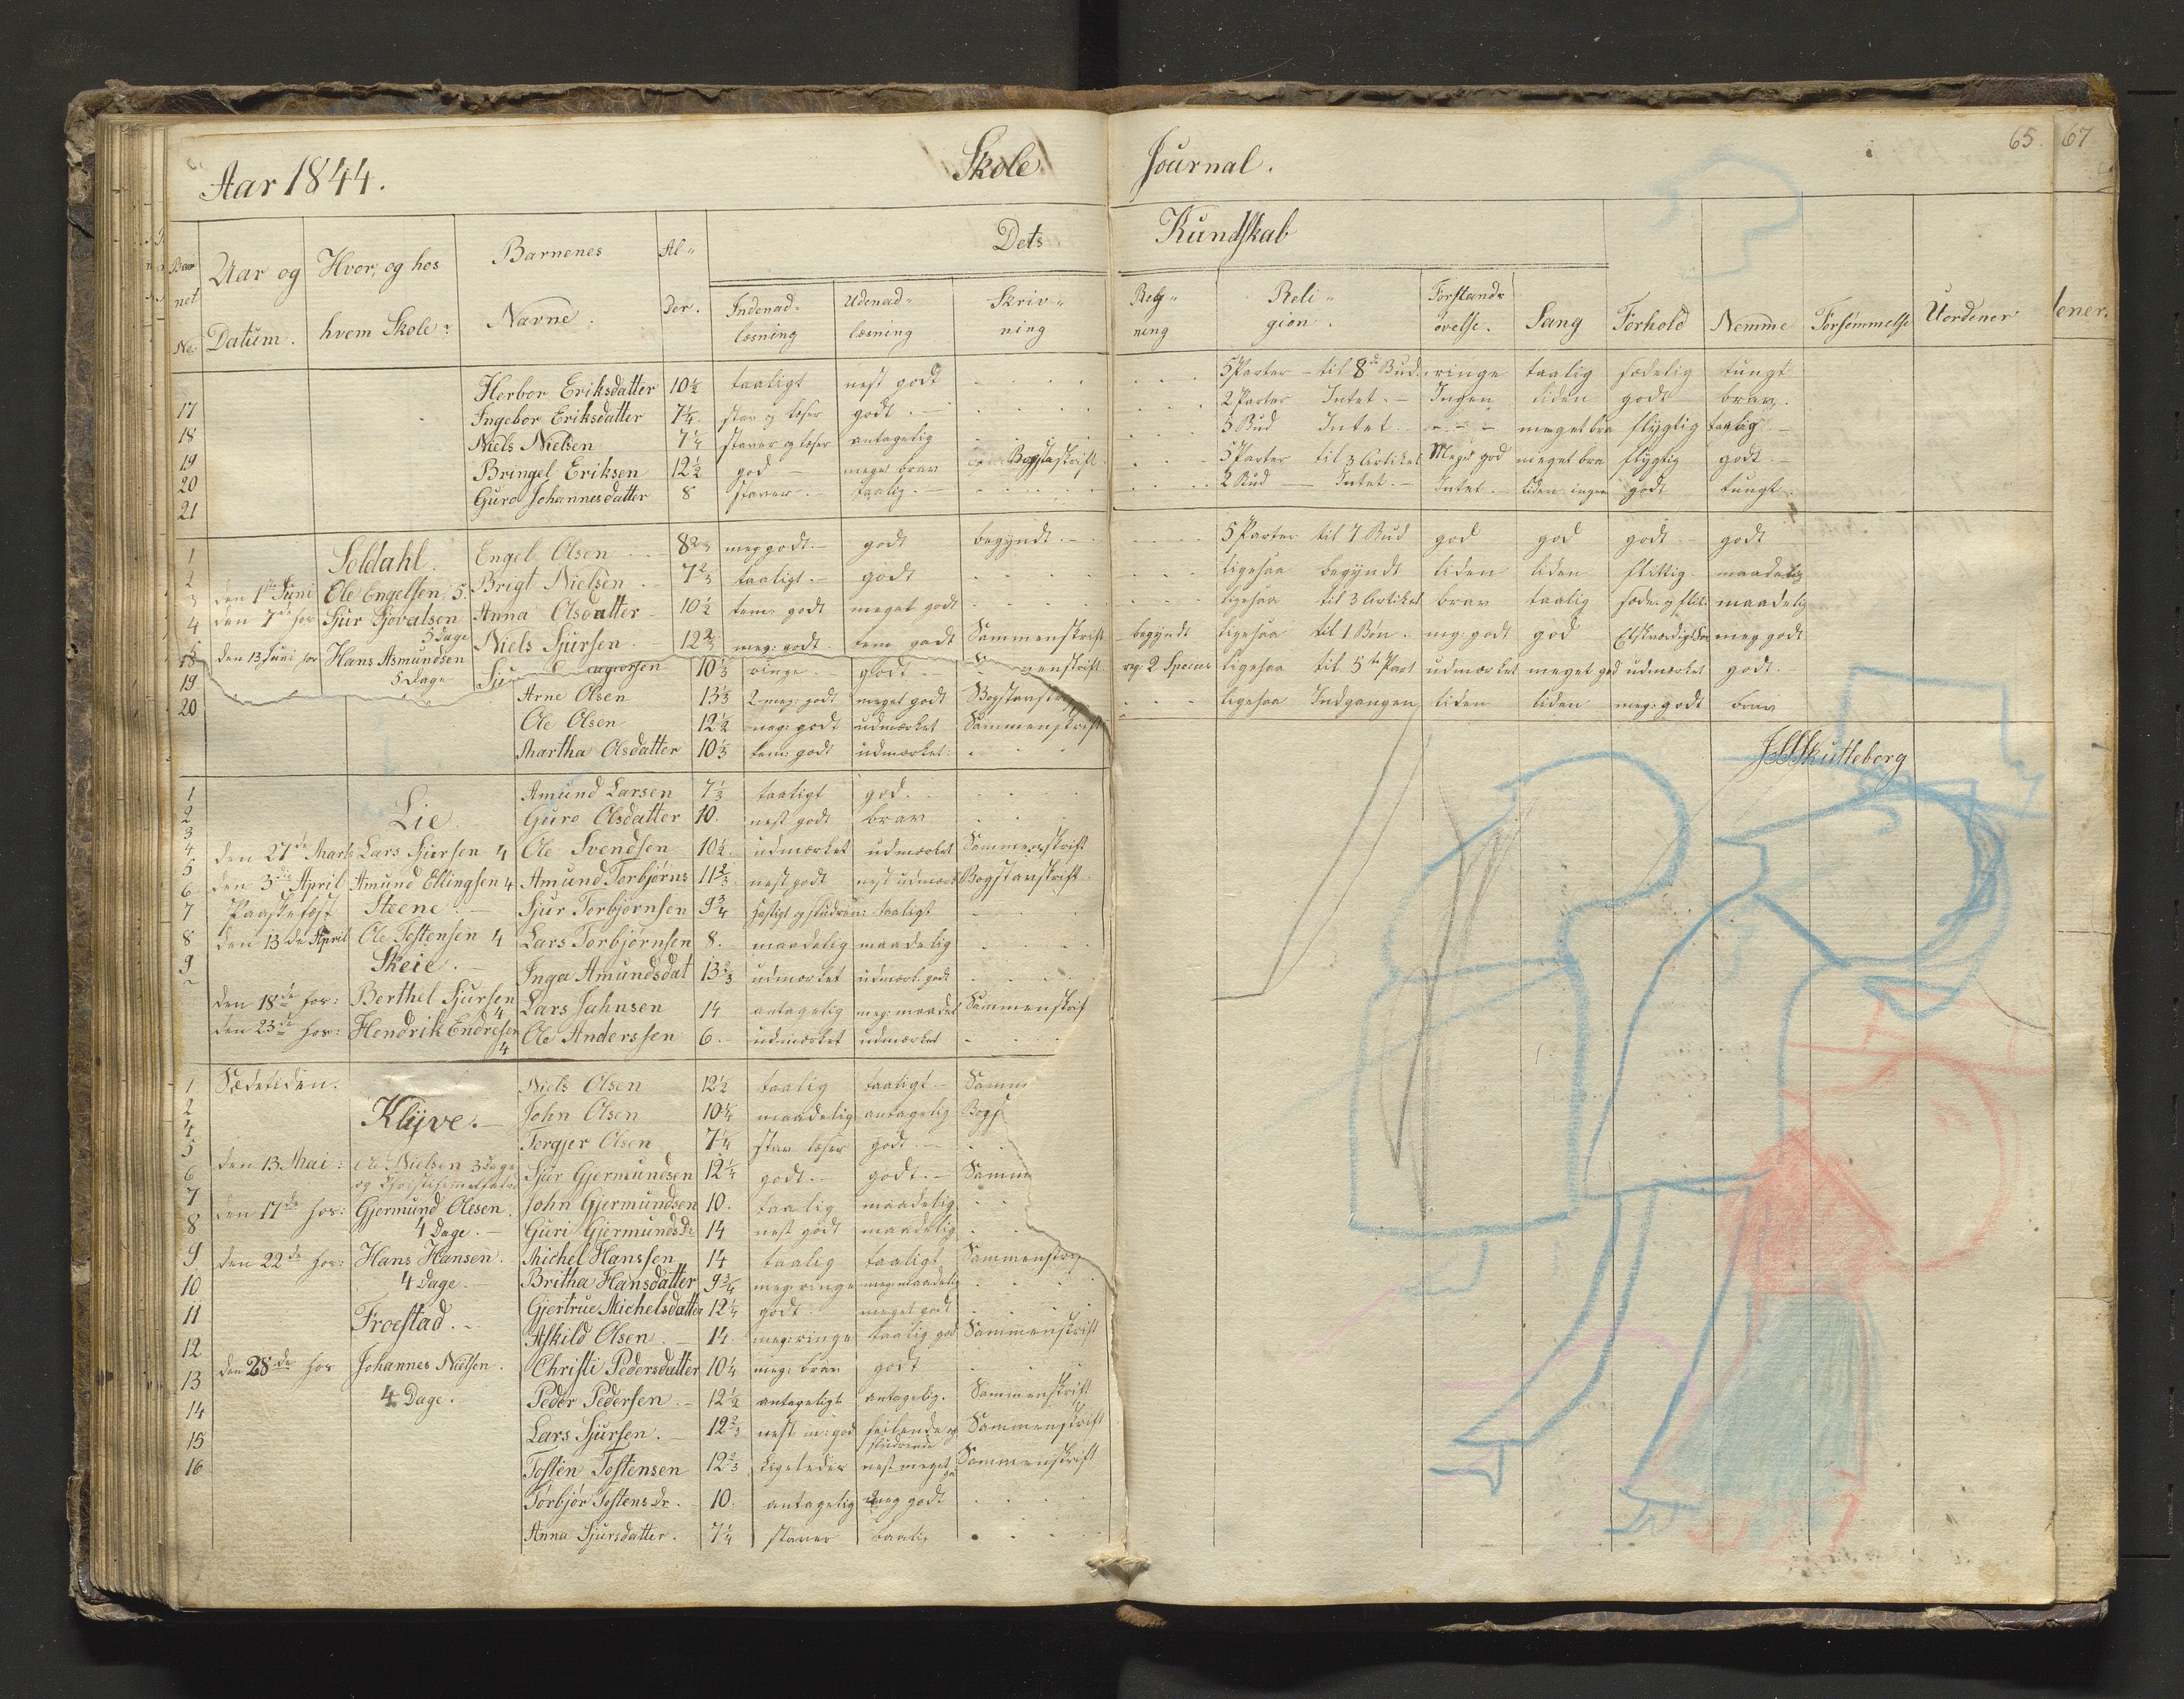 65. 67
Aar 1844. Skole Journal.
Dets Kundskab
Bar net No: Aar og Datum. Hvor, og hos hvem Skole: Barnenes Navne. Al- der. Indenad- læsning Udenad- læsning Skriv- ning Reg- ning Reli- gion. Forstands øvelse. Sang Forhold Nemme Forsømmelse Uordener
Herbor Eriksdatter 10½ taaligt nest godt 5 Parter - til 8de Bud. ringe taalig sædelig tungt
17 Ingebor Eriksdatter 7¼ stav og læser godt. 2 Parter Intet. - Ingen liden godt brav.
18 Niels Nielsen 7¼ staver og læser antagelig 3 Bud Intet meget bra flygtig taalig
19 Bringel Eriksen 12½ god meget brav Bogstavskrift 5 Parter til 3 Artikel Meget god meget bra flygtig godt
20 Guro Johannesdatter 8 staver. taalig. 2 Bud Intet. Intet. liden ingen godt tungt.
21
1 Soldahl. Engel Olsen 8⅔ meg godt. godt begyndt. 5 Parter til 7 Bud god god godt godt
2 den 1ste Juni Ole Engelsen, 5. Brigt Nielsen 7⅔ taaligt. godt ligesaa begyndt liden liden flittig maadelig
3 den 7de hos Sjur Sjovalsen 5 Dage Anna Olsdatter 10½ tem: godt meget godt ligesaa til 3 Artikel brav taalig maadelig
4 den 13 Juni hos Hans Asmundsen 5 Dage Niels Sjursen 12⅔ meg: godt tem godt Sammenskrift begyndt ligesaa til 1 Bøn. mg: godt god meg godt
18 10⅓ ringe. godt. reg: 2 Species ligesaa til 5te Part udmærket meget god udmærket godt
19 Arne Olsen 13⅓ 2 meg: godt meget godt ligesaa Indgangen liden liden meg: godt brav
20 Ole Olsen 12½ meg: godt udmærket Sammenskrift
Martha Olsdatter 10⅓ tem: godt udmærket.
1 Amund Larsen 7⅓ taaligt god.
2 Lie. Guro Olsdatter 10. nest godt brav
3
4 den 27de Marts Lars Sjursen 4 Ole Svendsen 10½. udmærket udmærket Sammenskrift
5 den 3die April Amund Ellingsen 4 Amund Torbjørns 11⅔ nest godt nest udmærk Bogstavskrift
6 Paaskefest Steene. Sjur Torbjørnsen 9¾ taaligt
7 den 13de April Ole Tostensen 4 Lars Torbjørnsen 8. maadelig maadelig
8 Skeie. Inga Amundsdat 13⅔ udmærket udmærk. godt
9 den 18de hos: Berthel Sjursen 4 Lars Jahnsen 14 antagelig meg: maadel Sammenskrif
den 23de hos: Hendrik Endresen 4 Ole Anderssen 6. udmærket udmærket
1 Sædetiden. Niels Olsen 12½ taalig taaligt Samm
2 Klyve. John Olsen 10¾ maadelig antagelig Bogs
4 Torgjer Olsen 7¼ stav læser godt
5 den 13 Mai: Ole Nielsen 3 Dage Sjur Gjermundsen 12¼ godt. godt. Samm
6 den 17de hos: Gjermund Olesen. John Gjermundsen 10. taalig maadelig
7 4 Dage. Guri Gjermundsdr 14 nest godt maadelig
8 den 22de hos: Hans Hansen. Michel Hanssen 14 taalig taaligt Sammenskrif
9 4 Dage. Britha Hansdatter 9¾ meg: ringe meg: maadelig
10 Froestad. Gjertrue Michelsdatter 12¼ godt. meget godt
11 Askild Olsen. 14. meg: ringe taalig god Sammenskrift
12 den 28de hos Johannes Nielsen. Christi Pedersdatter 10¼ meg: brav godt
13 4 Dage. Peder Pedersen 12½ antageligt antagelig. Sammenskrift
14 Lars Sjursen. 12⅔ nest m: god feilende og studrende Sammenskrift
15 Tosten Tostensen 12⅔ ligeledes nest meget go Sammenskrift
16 Torbjør Tostens Dr. 10. antagelig meg godt
Anna Sjursdatter. 7¼ staver taalig
Skutleberg